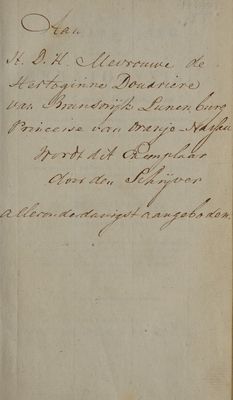 Aan
H. D. H. Mevrouwe de
Hertoginne Douariere
van Brunswijk Lunenburg
Princesse van Oranje Nassau
wordt dit Exemplaar
door den Schrijver
alleronderdanigst aangeboden.